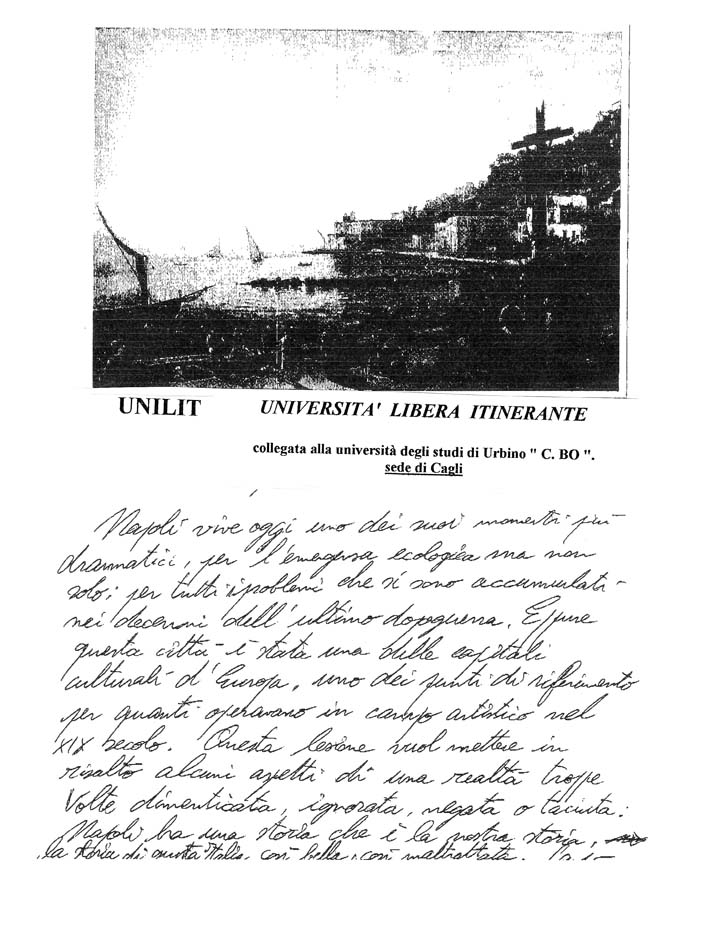 UNILIT UNIVERSITA' LIBERA ITINERANTE
collegata alla università degli studi di Urbino " C. BO ".
sede di Cagli
Napoli vive oggi uno dei suoi momenti più
drammatici, per l'emergenza ecologica ma non
solo; per tutti i problemi che si sono accumulati
nei decenni dell'ultimo dopoguerra. Eppure
questa città è stata una delle capitali
culturali d'Europa, uno dei punti di riferimento
per quanti operavano in campo artistico nel
XIX secolo. Questa lezione vuol mettere in
risalto alcuni aspetti di una realtà troppe
volte dimenticata, ignorata, negata o taciuta:
Napoli ha una storia che è la nostra storia,
la storia di questa Italia, così bella, così maltrattata.